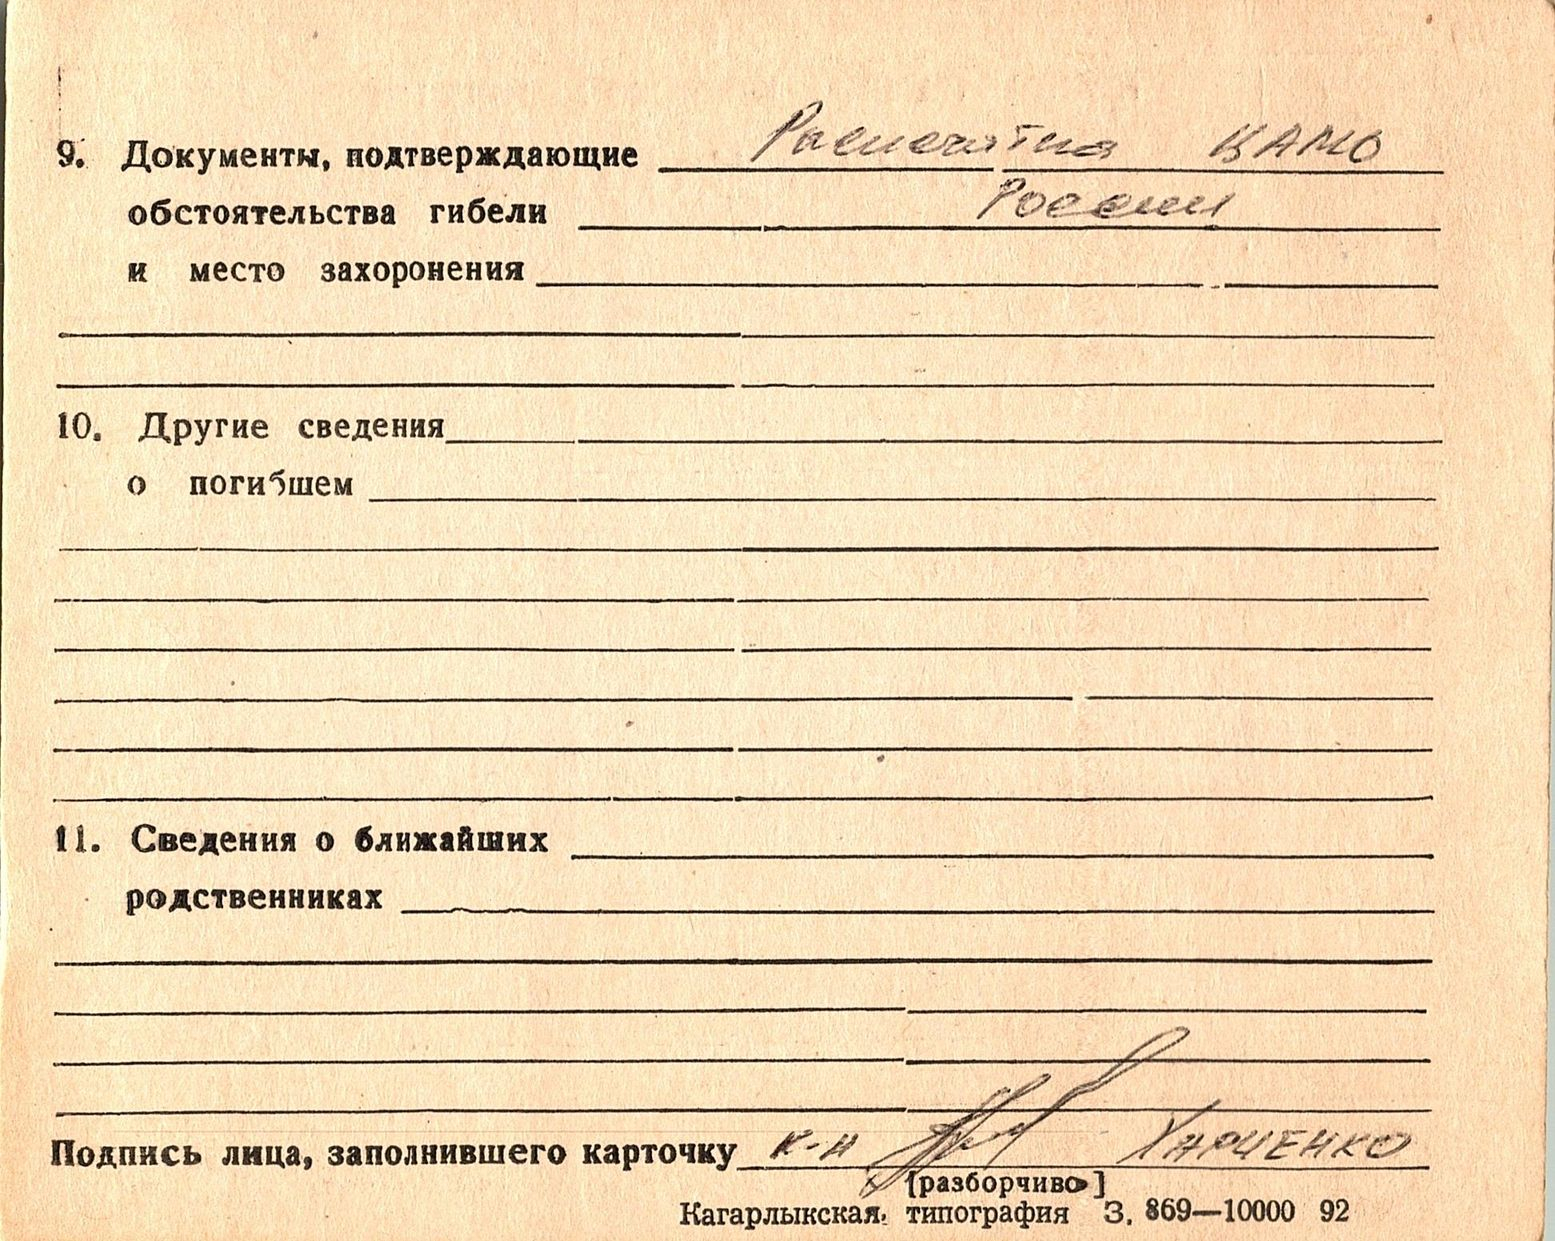 9. Документы, подтверждающие Распечатка ЦАМО
обстоятельства гибели России
и место захоронения
10. Другие сведения
о погибшем
11. Сведения о ближайших
родственниках
Подпись лица, заполнившего карточку к-н Харченко
[разборчиво]
Кагарлыкская типография З. 869—10000 92